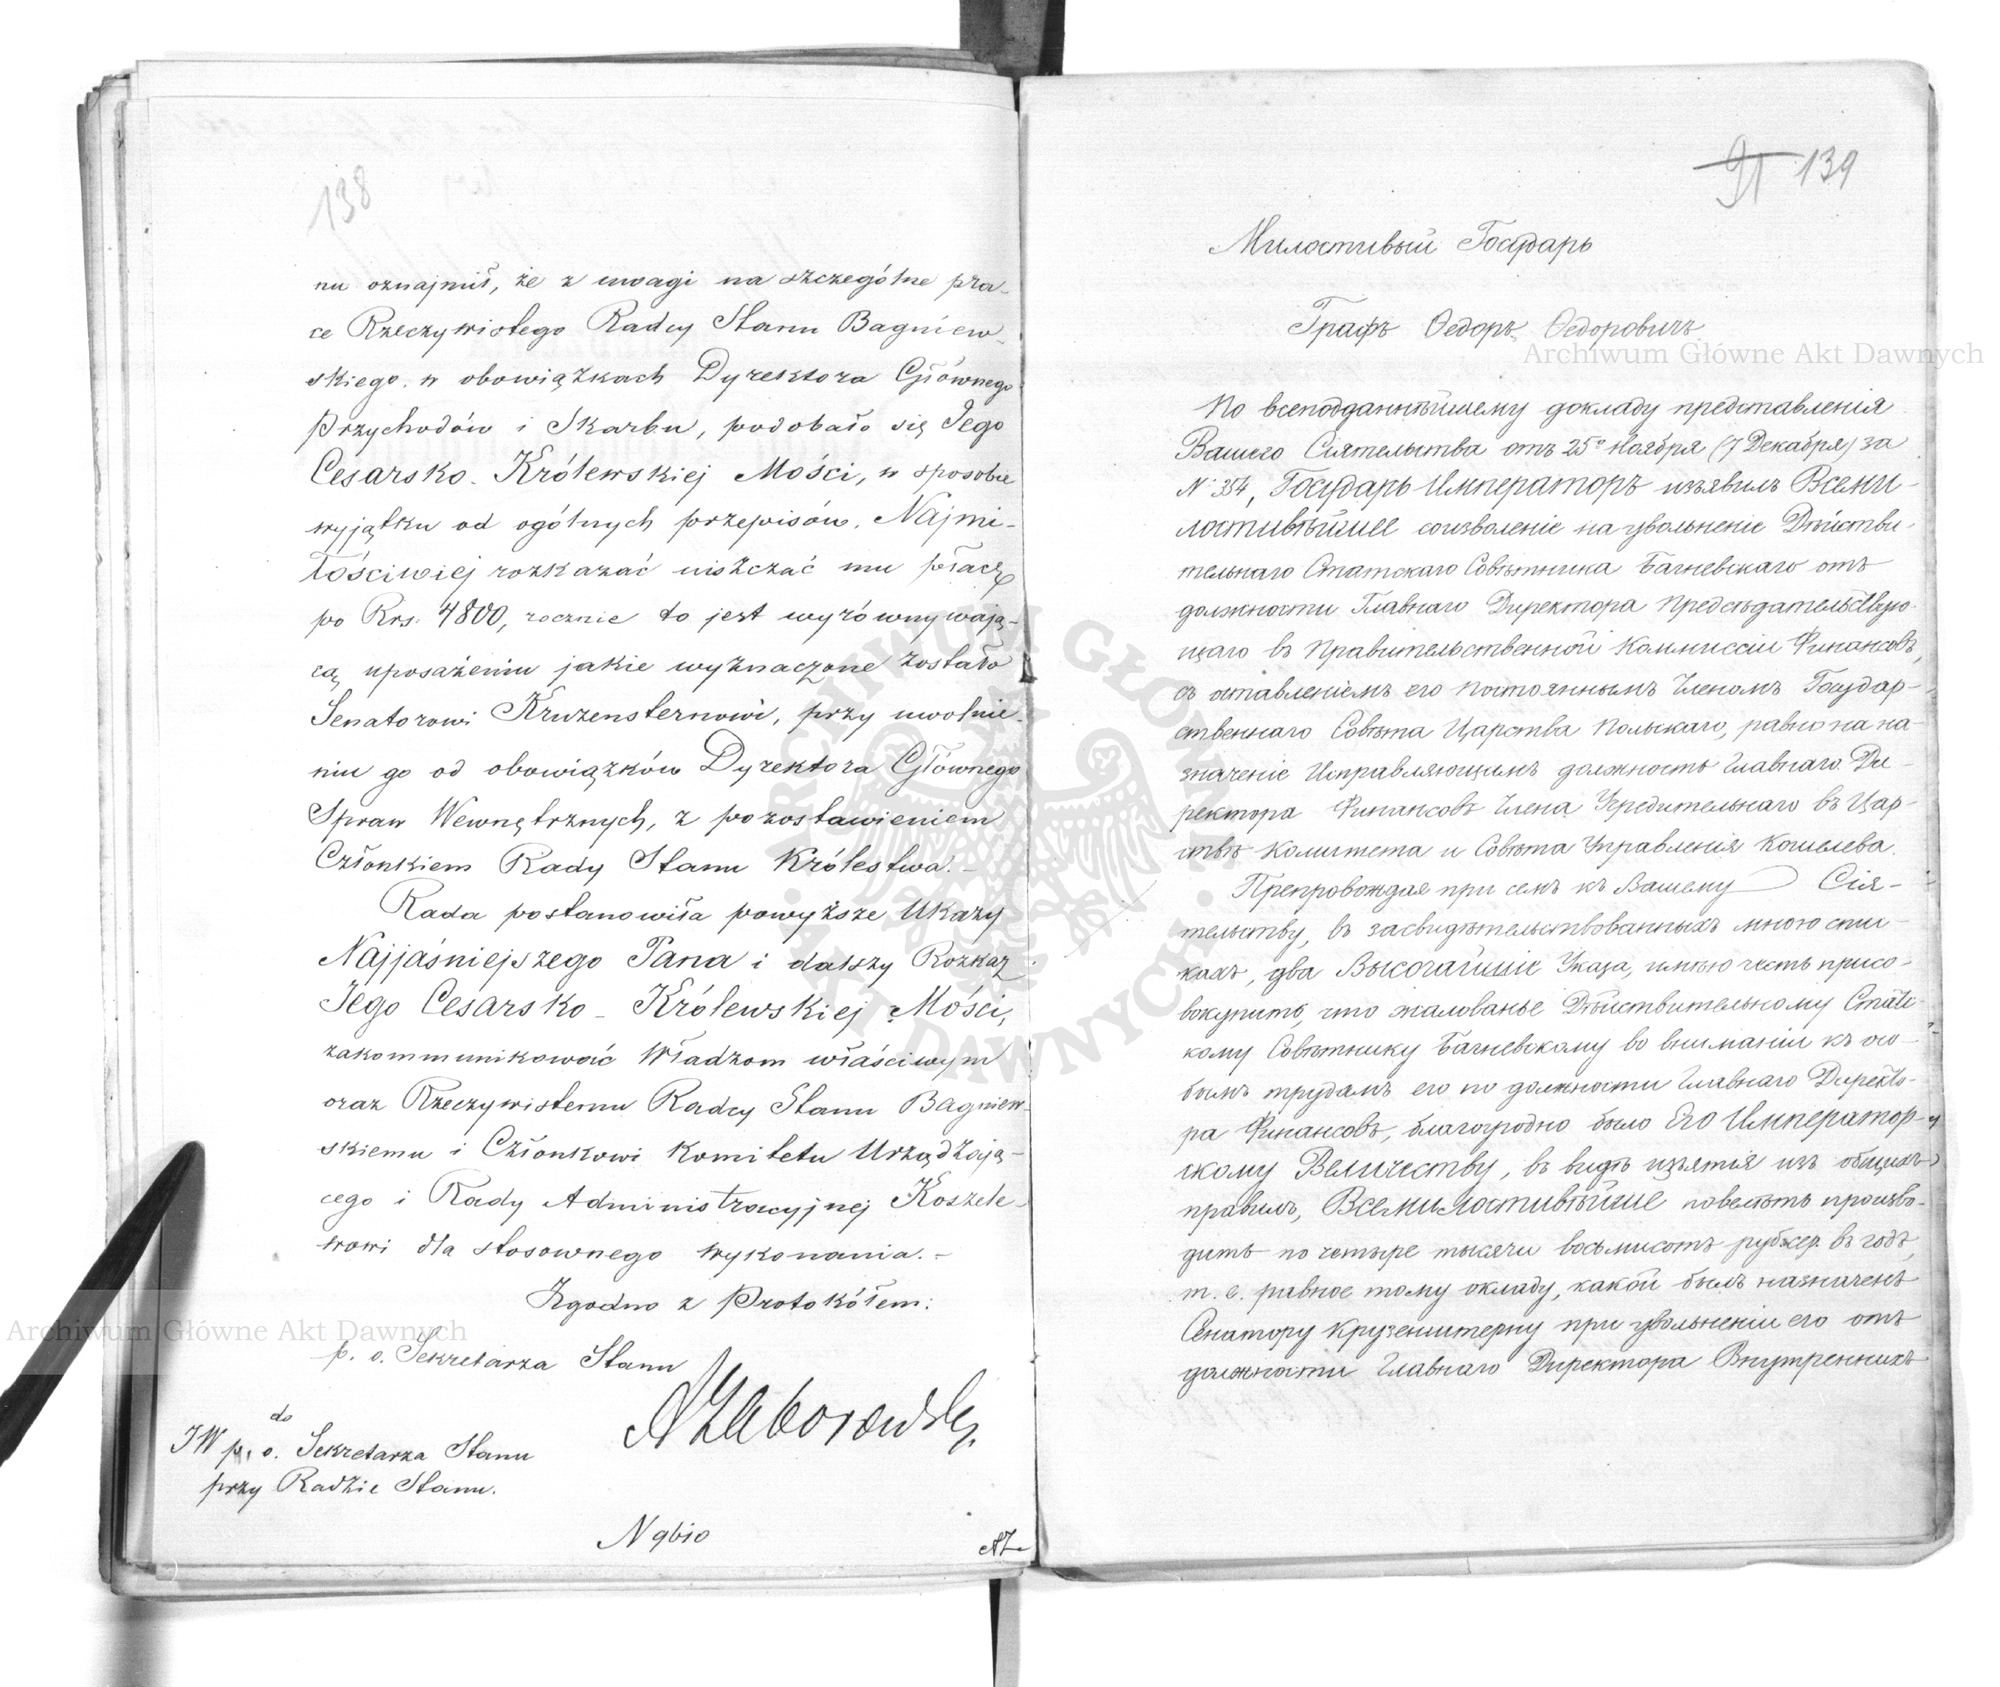 138
nu oznajmił, że z uwagi na szczególne pra-
ce Rzeczywistego Radcy Stanu Bagniew-
skiego w obowiązkach Dyrektora Głównego
Przychodów i Skarbu, podobało się Jego
Cesarsko-Królewskiej Mości, w sposobie
wyjątku od ogólnych przepisów, Najmi-
łościwiej rozkazać uiszczać mu płacę
po Rrs. 4800, rocznie to jest wyrównywają-
cą uposażeniu jakie wyznaczone zostało
Senatorowi Kruzensternowi, przy uwolnie-
niu go od obowiązków Dyrektora Głównego
Spraw Wewnętrznych, z pozostawieniem
Członkiem Rady Stanu Królestwa.-
Rada postanowiła powyższe Ukazy
Najjaśniejszego Pana i dalszy Rozkaz
Jego Cesarsko-Królewskiej Mości,
zakommunikować Władzom właściwym
oraz Rzeczywistemu Radcy Stanu Bagniew-
skiemu i Członkowi Komitetu Urządzają-
cego i Rady Administracyjnej Koszele-
wowi dla stosownego wykonania.-
Zgodno z Protokółem:
p. o. Sekretarza Stanu
AZaborowski
do
JW p. o. Sekretarza Stanu
przy Radzie Stanu.
N 9610
AZ
91 139
Милостивый Государь
Графъ Ѳедоръ Ѳедоровичъ
По всеподданнѣйшему докладу представленія
Вашего Сіятельства отъ 25го Ноября (7 Декабря) за
№ 354, Государь Императоръ изъявилъ Всеми-
лостивѣйшее соизволеніе на увольненіе Дѣйстви-
тельнаго Статскаго Совѣтника Багневскаго отъ
должности Главнаго Директора Предсѣдательствую-
щаго въ Правительственной Коммиссіи Финансовъ,
съ оставленіемъ его постояннымъ Членомъ Государ-
ственнаго Совѣта Царства Польскаго, равно на на-
значеніе Исправляющимъ должность Главнаго Ди-
ректора Финансовъ Члена Учредительнаго въ Цар-
ствѣ Комитета и Совѣта Управленія Кошелева.
Препровождая при семъ къ Вашему Сія-
тельству, въ засвидѣтельствованныхъ мною спи-
кахъ, два Высочайшіе Указа, имѣю честь присо-
вокупить, что жалованье Дѣйствительному Статс-
кому Совѣтнику Багневскому во вниманіи къ осо-
бымъ трудамъ его по должности Главнаго Директо-
ра Финансовъ, благоугодно было Его Император-
скому Величеству, въ видѣ изъятія изъ общихъ
правилъ, Всемилостивѣйше повелѣть произво-
дить по четыре тысячи восьмисотъ руб. сер. въ годъ,
т. е. равное тому окладу, какой былъ назначенъ
Сенатору Крузенштерну при увольненіи его отъ
должности Главнаго Директора Внутреннихъ
Archiwum Główne Akt Dawnych
Archiwum Główne Akt Dawnych
ARCHIWUM GŁÓWNE AKT DAWNYCH